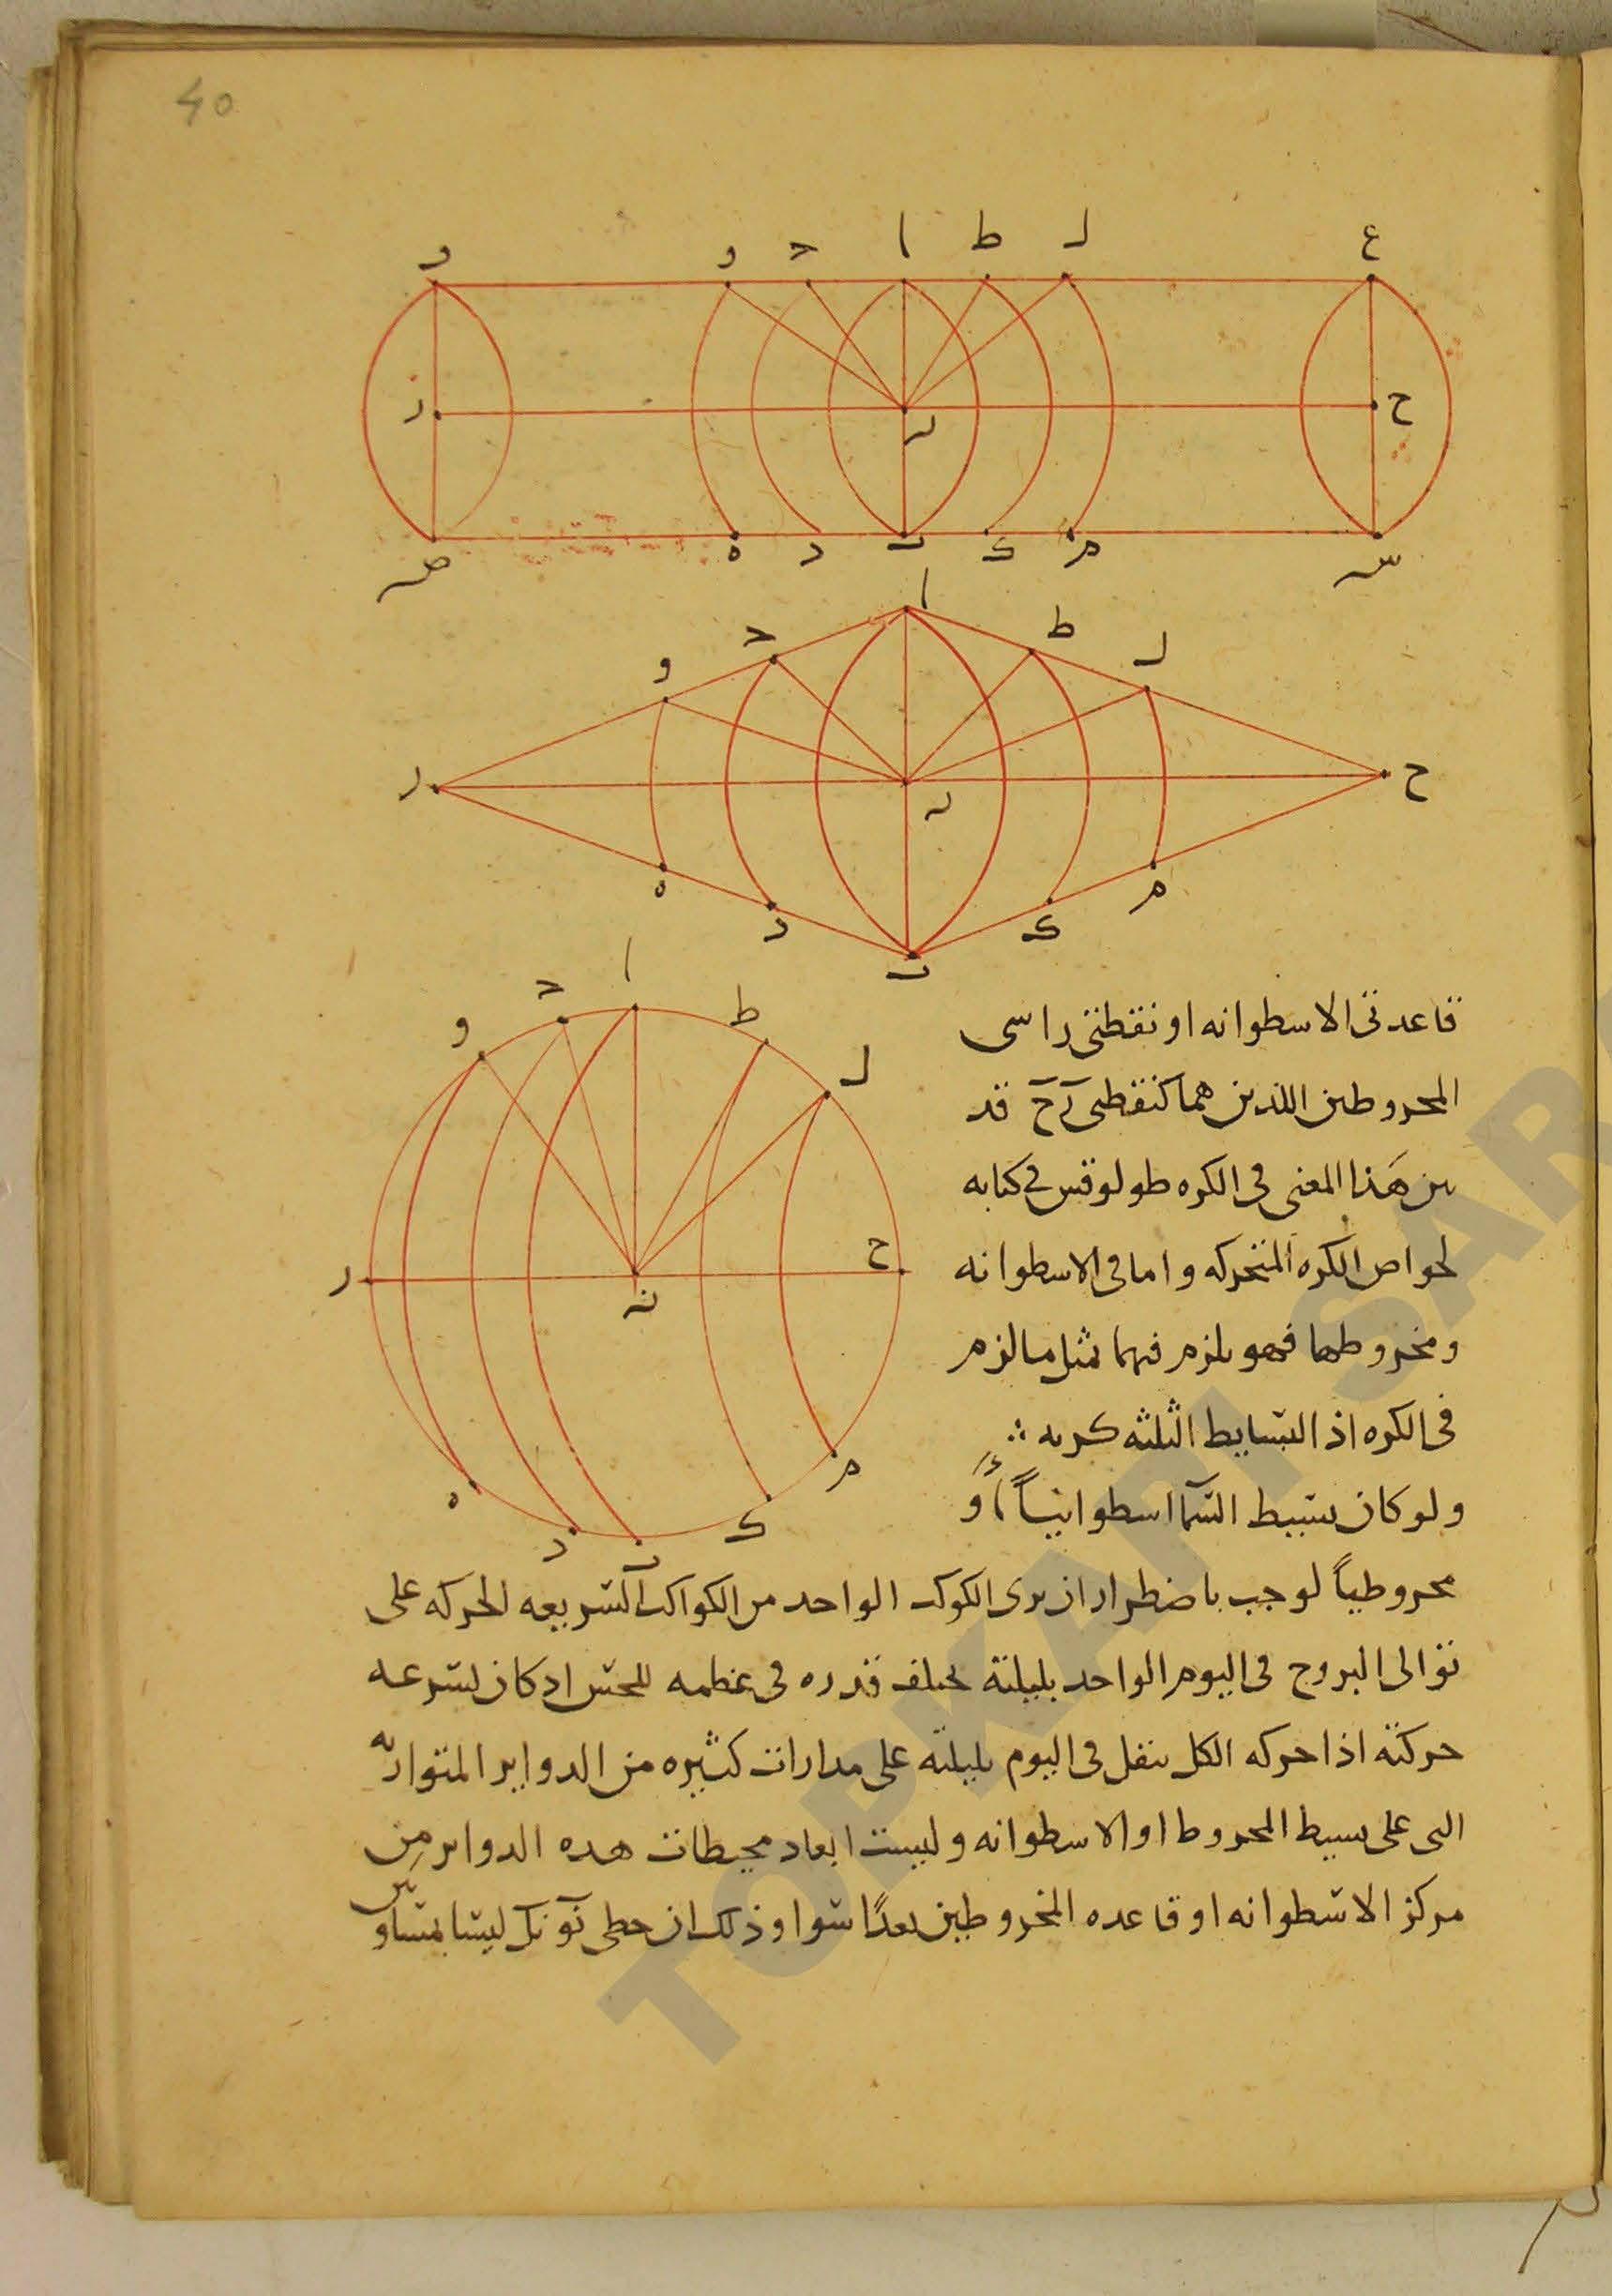 40
ف و ح ا ط ل ع
ر ن ح
ص ه د ب ك م س
ا
ح ط
و ل
ر ن ح
ه م
د ك
ب
ا
ح ط
و ل
ر ن ح
ه م
د ب ك
قاعدتى الاسطوانه او نقطتى راسى
المخروطين اللذين هما كنقطتى ر ح قد
بين هذا المعنى فى الكره طولوقس فى كتابه
لخواص الكره المتحركه واما فى الاسطوانه
ومخروطها فهو يلزم فيهما مثل ما لزم
فى الكره اذ البسايط الثلثه كريه
ولو كان بسيط السمآ اسطوانياً او
مخروطياً لوجب باضطرار ان يرى الكوكب الواحد من الكواكب السريعه الحركه على
توالى البروج فى اليوم الواحد بليلته يختلف قدره فى عظمه للحس اذ كان لسرعه
حركته اذا حركه الكل ينقل فى اليوم بليلته على مدارات كثيره من الدواير المتوازيه
التى على بسيط المخروط او الاسطوانه وليست ابعاد محيطات هذه الدواير من
مركز الاسطوانه او قاعده المخروطين بعدًا سوا وذلك ان خطى نو نل ليسا بمتساويين
TOPKAPI SAR